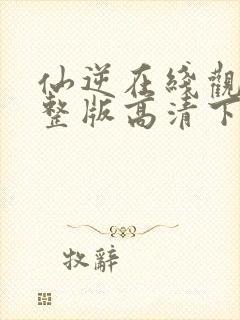 仙逆在綫觀
整版高清下
牧辭